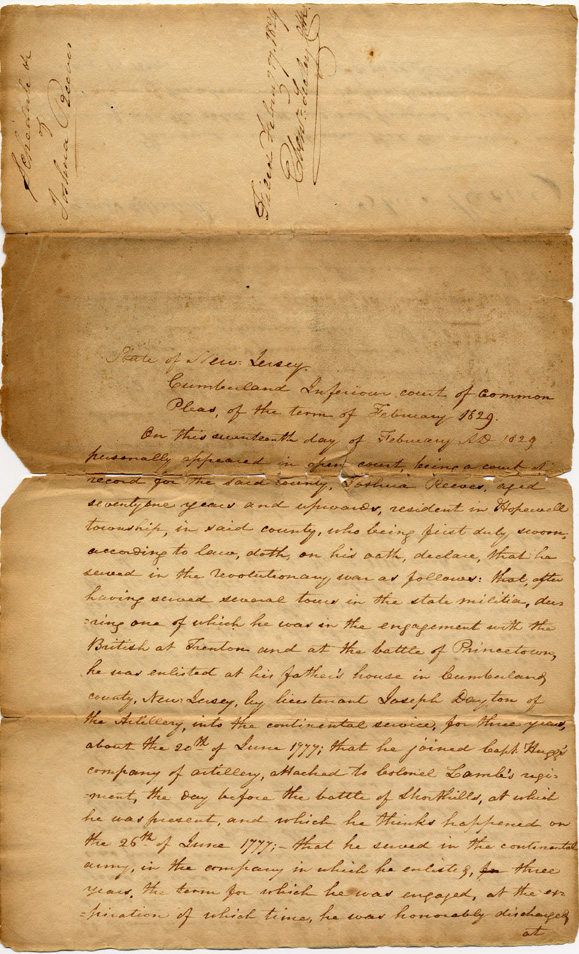 Schedule &
of
Joshua Reeves
Filed Feby 17, 1829
Eben. Seeley Clk.
State of New-Jersey.
Cumberland Inferiour court of common
Pleas, of the term of February 1829.
On this seventeenth day of February AD 1829
personally appeared in open court, being a court of
record for the said county, Joshua Reeves, aged
seventyone years and upwards, resident in Hopewell
township, in said county, who being first duly sworn,
according to law, doth, on his oath, declare, that he
served in the revolutionary war as follows: that, after
having served several tours in the state militia, du-
=ring one of which he was in the engagement with the
British at Trenton and at the battle of Princetown,
he was enlisted at his father's house in Cumberland
county, New-Jersey, by lieutenant Joseph Dayton of
the Artillery, into the continental service, for three years,
about the 20th of June 1777; that he joined Capt Hugg's
company of artillery, attached to Colonel Lamb's regi-
=ment, the day before the battle of Shorthills, at which
he was present, and which he thinks happened on
the 26th of June 1777;- that he served in the continental
army, in the company in which he enlisted, for three
years, the term for which he was engaged, at the ex-
=piration of which time, he was honorably discharged
at